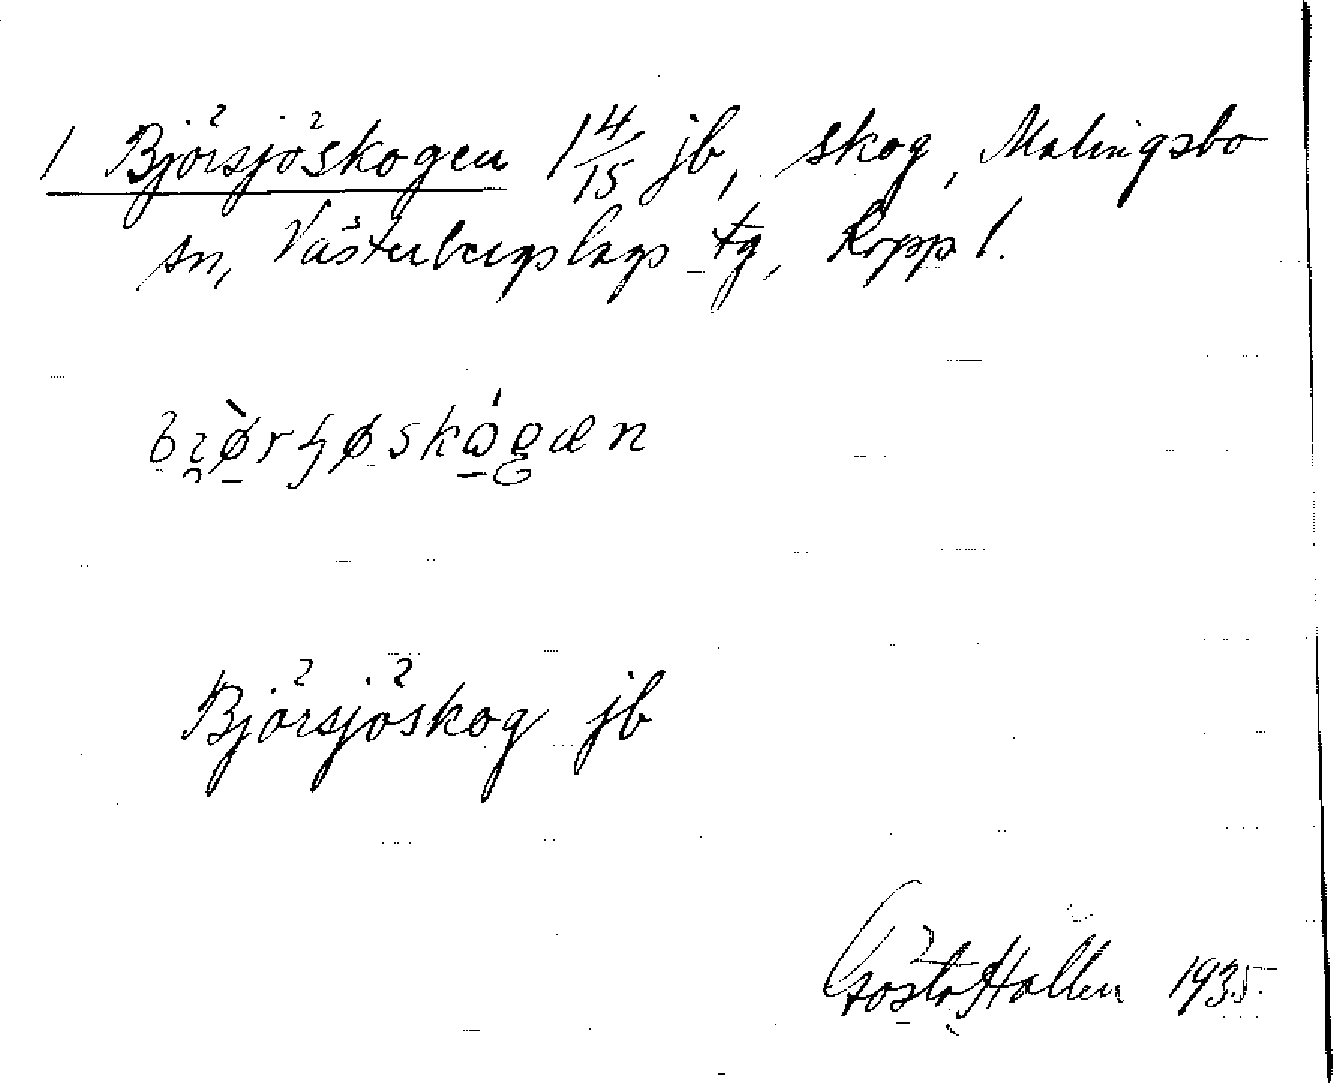 1 Björsjöskogen 1 4/15 jb, skog, Malingsbo
sn, Västerbergslags tg, Kopp l.
Björsjöskog jb
Gösta Hallén 1935.